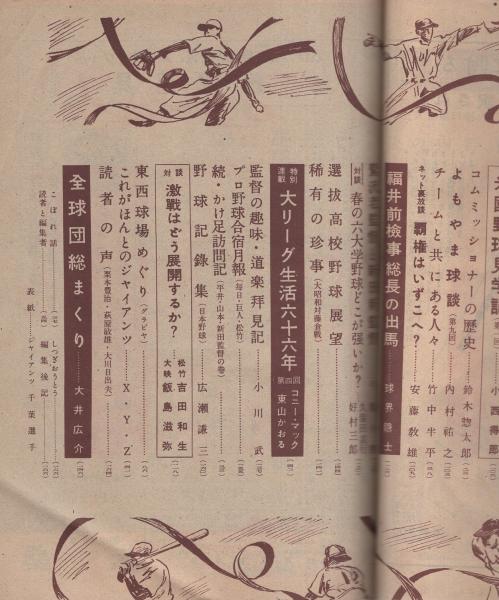 小西得郎
コミッショナーの歴史 鈴木惣太郎
よもやま球談(第九回) 内村祐之
チームと共にある人々 竹中半平
ネット裏放談 覇権はいずこへ? 安藤敎雄
福井前検事総長の出馬 球界隠士
対談 春の六大学野球どこが強いか? 好村三郎
選抜高校野球展望
稀有の珍事(大昭相対藤倉戦)
特別連載 大リーグ生活六十六年 第四回 コニー・マック 東山かおる
監督の趣味・道楽拜見記 小川武
プロ野球合宿月報(毎日・巨人・松竹)
続・かけ足訪問記(平井・山本・新田監督の巻)
野球記録集(日本野球) 広瀬謙三
対談 激戰はどう展開するか? 松竹 吉田和生 大映 飯島滋弥
東西球場めぐり(グラビヤ)
これがほんとのジャイアンツ X・Y・Z
読者の声(栗本豊治・萩原敏雄・大川日出夫)
全球団総まくり 大井広介
こぼれ話 しつぎおうとう
読者と編集者 編集後記
表紙 ジャイアンツ 千葉選手